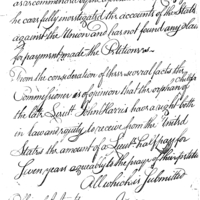 he carefully investigated the accounts of the State
against the Union and has not found any claim
for payment made the Petitioners
From the consideration of these several facts the
Commissioner is of opinion that the orphan of
the late Lieut. John Harris has a right both
in law and equity to receive from the United
States the amount of a Lieuts. half pay for
Seven years agreeably to the prayer of their petition
All which is Submitted